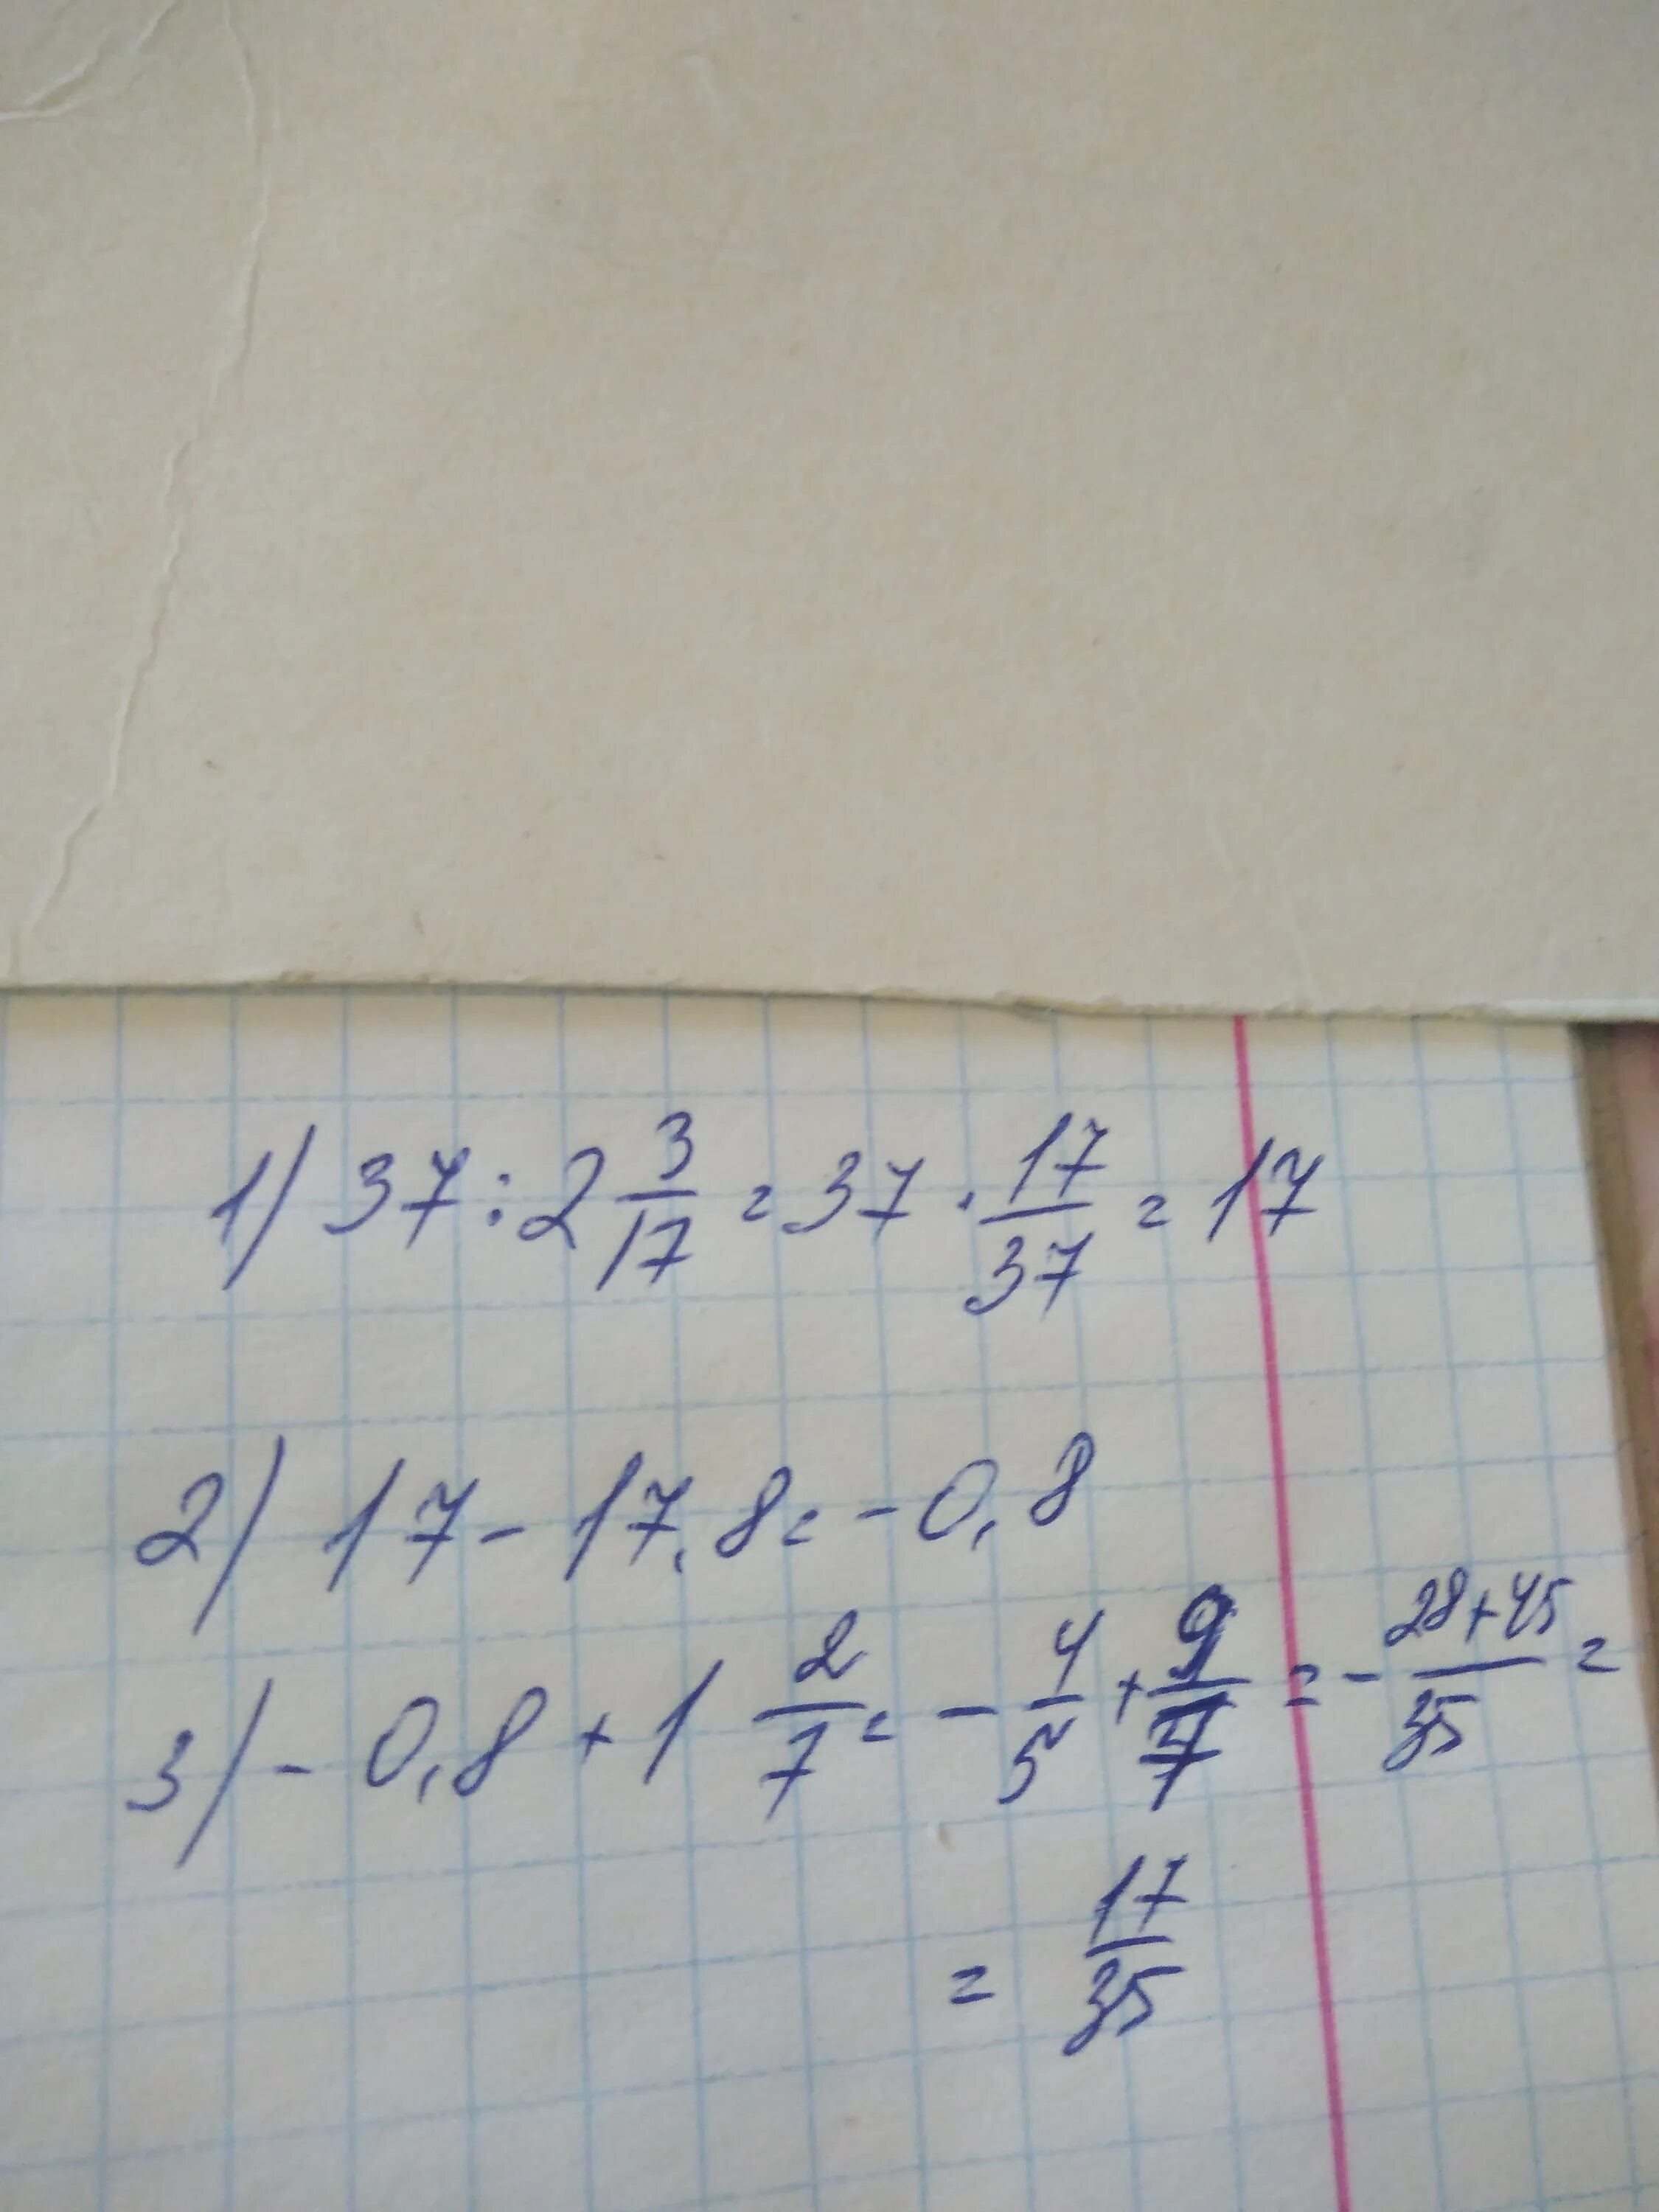 1) 37 : 2 3/17 = 37 · 17/37 = 17
2) 17 - 17,8 = - 0,8
3) - 0,8 + 1 2/7 = - 4/5 + 9/7 = - 28+45/35 =
= 17/35